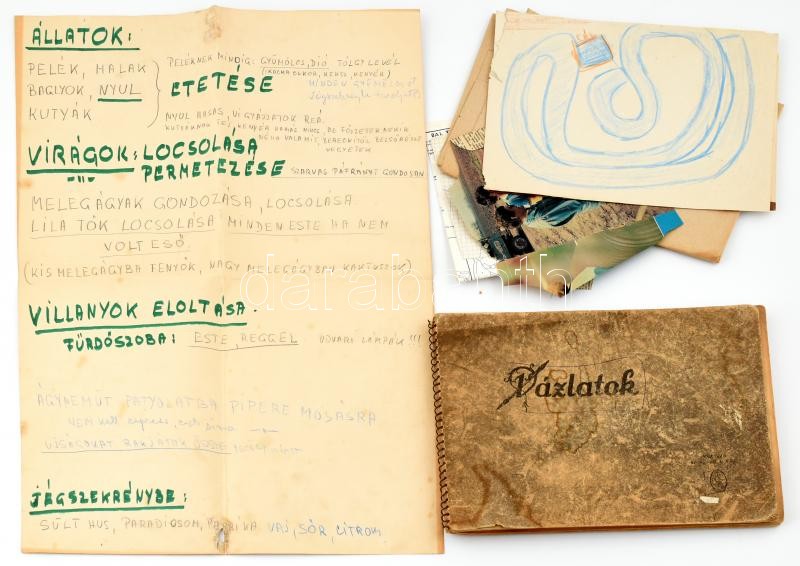 ÁLLATOK:
PELÉK, HALAK
BAGLYOK, NYUL
KUTYÁK
PELÉKNEK MINDIG: GYÜMÖLCS, DIÓ TÖLGY LEVÉL
KEKSZ, KENYÉR)
ETETÉSE
MINDEN GYÜMÖLCSÖT
NYUL HASAS, VIGYÁZZATOK REÁ.
KUTYÁKNAK KENYÉR HA MÁS NINCS, DE FŐZZETEK NEKIK
NÉHA VALAMIT, BELSŐRÉSZT
VEGYETEK
VIRÁGOK: LOCSOLÁSA
PERMETEZÉSE SZARVAS PÁFRÁNYT GONDOSAN
MELEGÁGYAK GONDOZÁSA, LOCSOLÁSA
LILA TÓK LOCSOLÁSA MINDEN ESTE HA NEM
VOLT ESŐ
(KIS MELEGÁGYBA FENYŐK, NAGY MELEGÁGYBAN KAKTUSZOK)
VILLANYOK ELOLTÁSA.
FÜRDŐSZOBA: ESTE, REGGEL UDVARI LÁMPÁK!!!
ÁGYNEMŰT PATYOLATBA PIPERE MOSÁSRA
NEM kell
UJSÁGOKAT RAKJATOK ÖSSZE
JÉGSZEKRÉNYBE:
SÜLT HUS, PARADICSOM, PAPRIKA VAJ, SÖR, CITROM
darabanth
Vázlatok